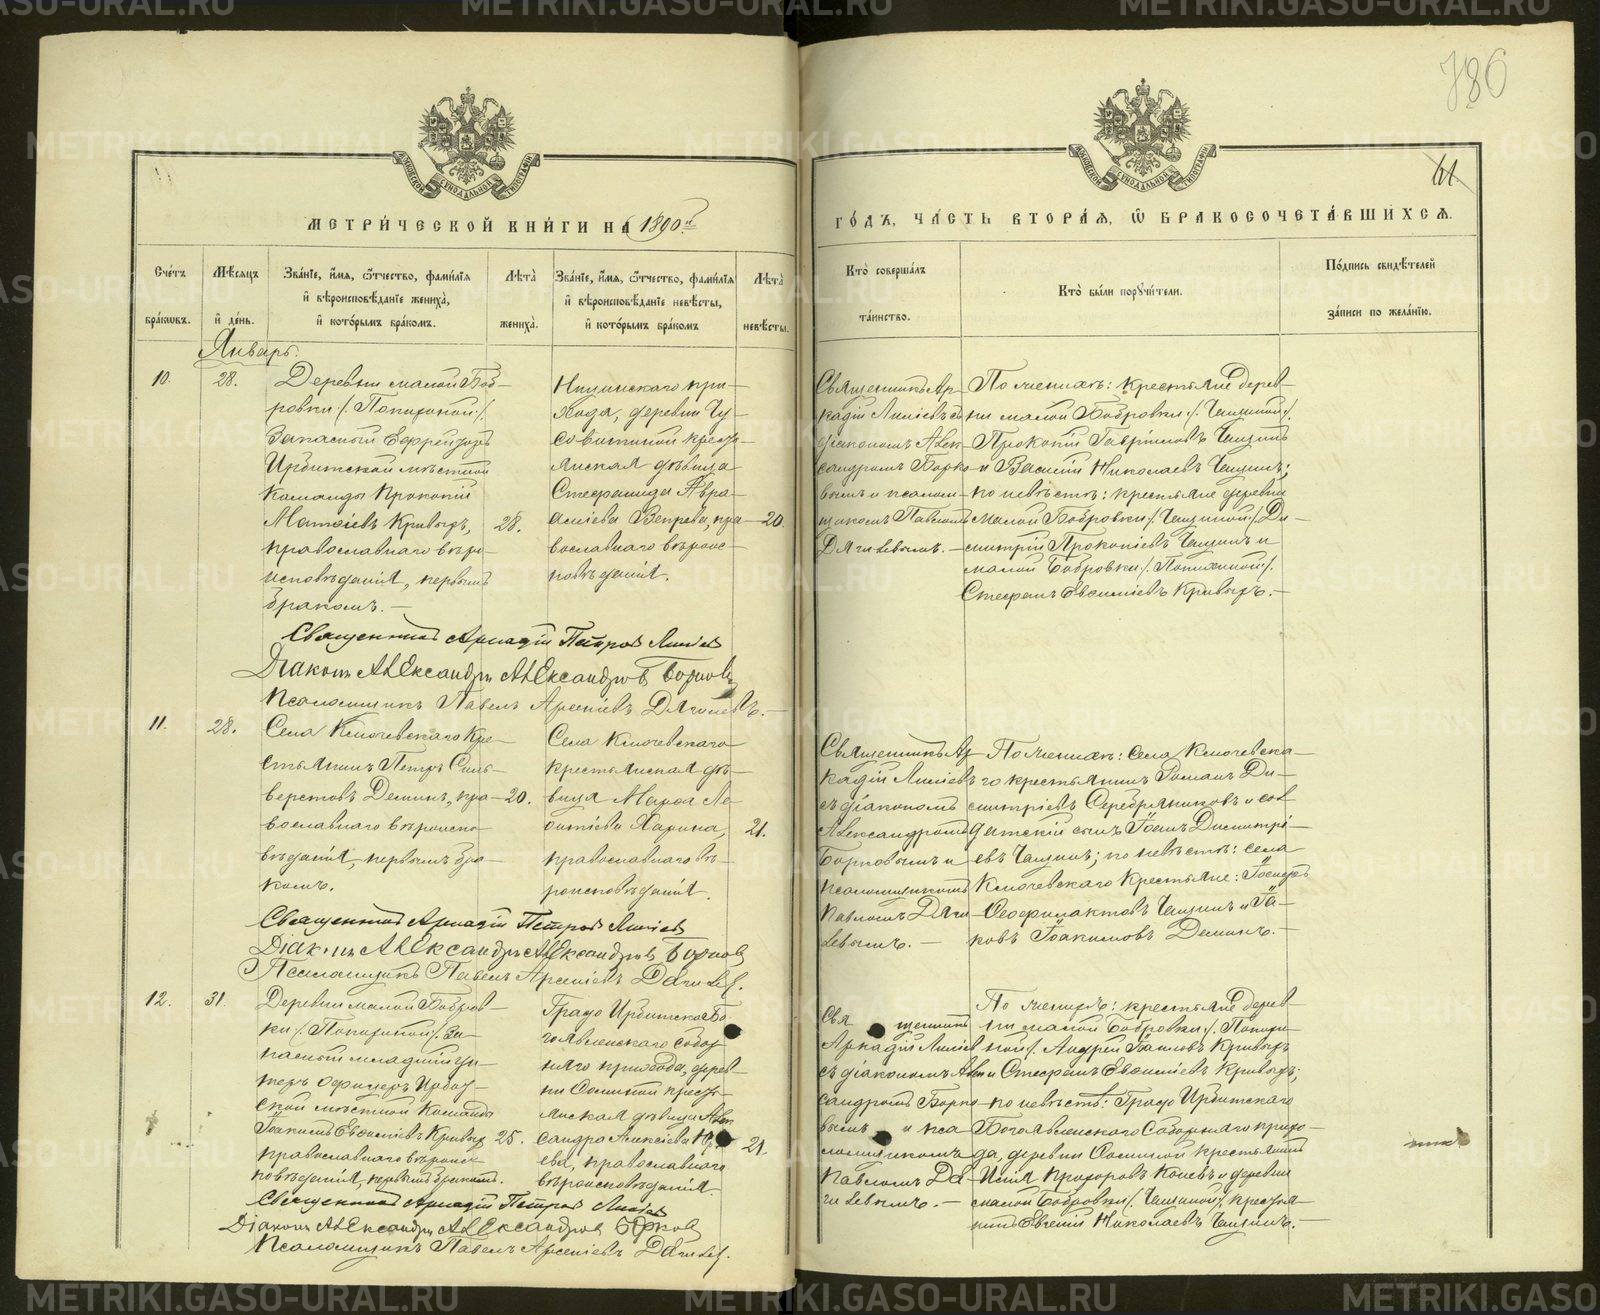 METRIKI.GASO-URAL.RU
786
61
МЕТРИ́ЧЕСКОЙ КНИ́ГИ НА 1890й
ГО́ДЪ, ЧА́СТЬ ВТОРА́Я, Ѽ БРАКОСОЧЕТА́ВШИХСЯ.
Сче́тъ бра́кωвъ.
Мѣ́сяцъ и҆ де́нь.
Зва́нїе, и҆́мя, ѻ҆́тчество, фами́лїя
и҆ вѣроисповѣ́данїе жениха̀,
и҆ кото́рымъ бра́комъ.
Лѣ́та жениха̀.
Зва́нїе, и҆́мя, ѻ҆́тчество, фами́лїя
и҆ вѣроисповѣ́данїе невѣ́сты,
и҆ кото́рымъ бра́комъ
Лѣ́та невѣ́сты.
Кто̀ соверша́лъ
та́инство.
Кто̀ бы́ли порꙋчи́тели.
По́дпись свидѣ́телей
за́писи по жела́нїю.
Январь.
10.
28.
Деревни малой Боб-
ровки /: :/
Запасный Ефрейторъ
Ирбитской мѣстной
Команды Прокопій
Матѳіевъ Кривыхъ,
православнаго вѣро-
исповѣданія, первымъ
бракомъ. —
28.
Ницинскаго при-
хода, деревни Чу-
совитиной кресть-
янская дѣвица
Стефанида Авра-
аміева Вепрева, пра-
вославнаго вѣроис-
повѣданія.
20.
Священникъ Ар-
кадій Линіевъ съ
діакономъ Алек-
сандромъ Борко-
вымъ и псалом-
щикомъ Павломъ
Дягилевымъ. —
По женихѣ: крестьяне дерев-
ни малой Бобровки /: Чащиной :/
Прокопій Гавріиловъ Чащинъ
и Василій Николаевъ Чащинъ;
по невѣстѣ: крестьяне деревни
малой Бобровки /: Чащиной :/ Ди-
митрій Прокопіевъ Чащинъ и
малой Бобровки /: :/
Стефанъ Евѳиміевъ Кривыхъ. —
Священникъ Аркадій Петровъ Линіевъ
Діаконъ Александръ Александровъ Борковъ
Псаломщикъ Павелъ Арсеніевъ Дягилевъ. —
11.
28.
Села Ключевскаго Кре-
стьянинъ Петръ Силь-
верстовъ Деминъ, пра-
вославнаго вѣроиспо-
вѣданія, первымъ бра-
комъ.
20.
Села Ключевскаго
крестьянская дѣ-
вица Марѳа Ле-
онтіева Харина,
православнаго вѣ-
роисповѣданія.
21.
Священникъ Ар-
кадій Линіевъ
съ діакономъ
Александромъ
Борковымъ и
псаломщикомъ
Павломъ Дяги-
левымъ. —
По женихѣ: села Ключевска-
го крестьянинъ Романъ Ди-
митріевъ Серебряниковъ и сол-
датскій сынъ Іоаннъ Димитрі-
евъ Чащинъ; по невѣстѣ: села
Ключевскаго Крестьяне: Іосифъ
Ѳеофилактовъ Чащинъ и Іа-
ковъ Іоакимовъ Деминъ. —
Священникъ Аркадій Петровъ Линіевъ
Діаконъ Александръ Александровъ Борковъ
Псаломщикъ Павелъ Арсеніевъ Дягилев.
12.
31.
Деревни малой Бобров-
ки /: :/ За-
пасный младшій Ун-
теръ Офицеръ Ирбит-
ской мѣстной Команды
Іоакимъ Евѳиміевъ Кривыхъ
православнаго вѣроис-
повѣданія, первымъ бракомъ.
25.
Градо Ирбитской Бо-
гоявленскаго собор-
наго прихода, дерев-
ни кресть-
янская дѣвица Алек
сандра Алексіева
ева, православнаго
вѣроисповѣданія.
21.
Священникъ
Аркадій Линіев
съ діакономъ Алек
сандромъ Борко-
вымъ и пса-
ломщикомъ
Павломъ Дя-
гилевымъ. —
По женихѣ: крестьяне дерев-
ни малой Бобровки /:
:/ Андрей Кривыхъ
и Стефанъ Евѳиміевъ Кривыхъ;
по невѣстѣ: Градо Ирбитскаго
Богоявленскаго Соборнаго прихо-
да, деревни крестьянинъ
и деревни
малой Бобровки /: Чащиной :/ крестья-
нинъ Евгеній Николаевъ Чащинъ. —
Священникъ Аркадій Петровъ Линіевъ
Діаконъ Александръ Александровъ Борков
Псаломщикъ Павелъ Арсеніевъ Дягилев.